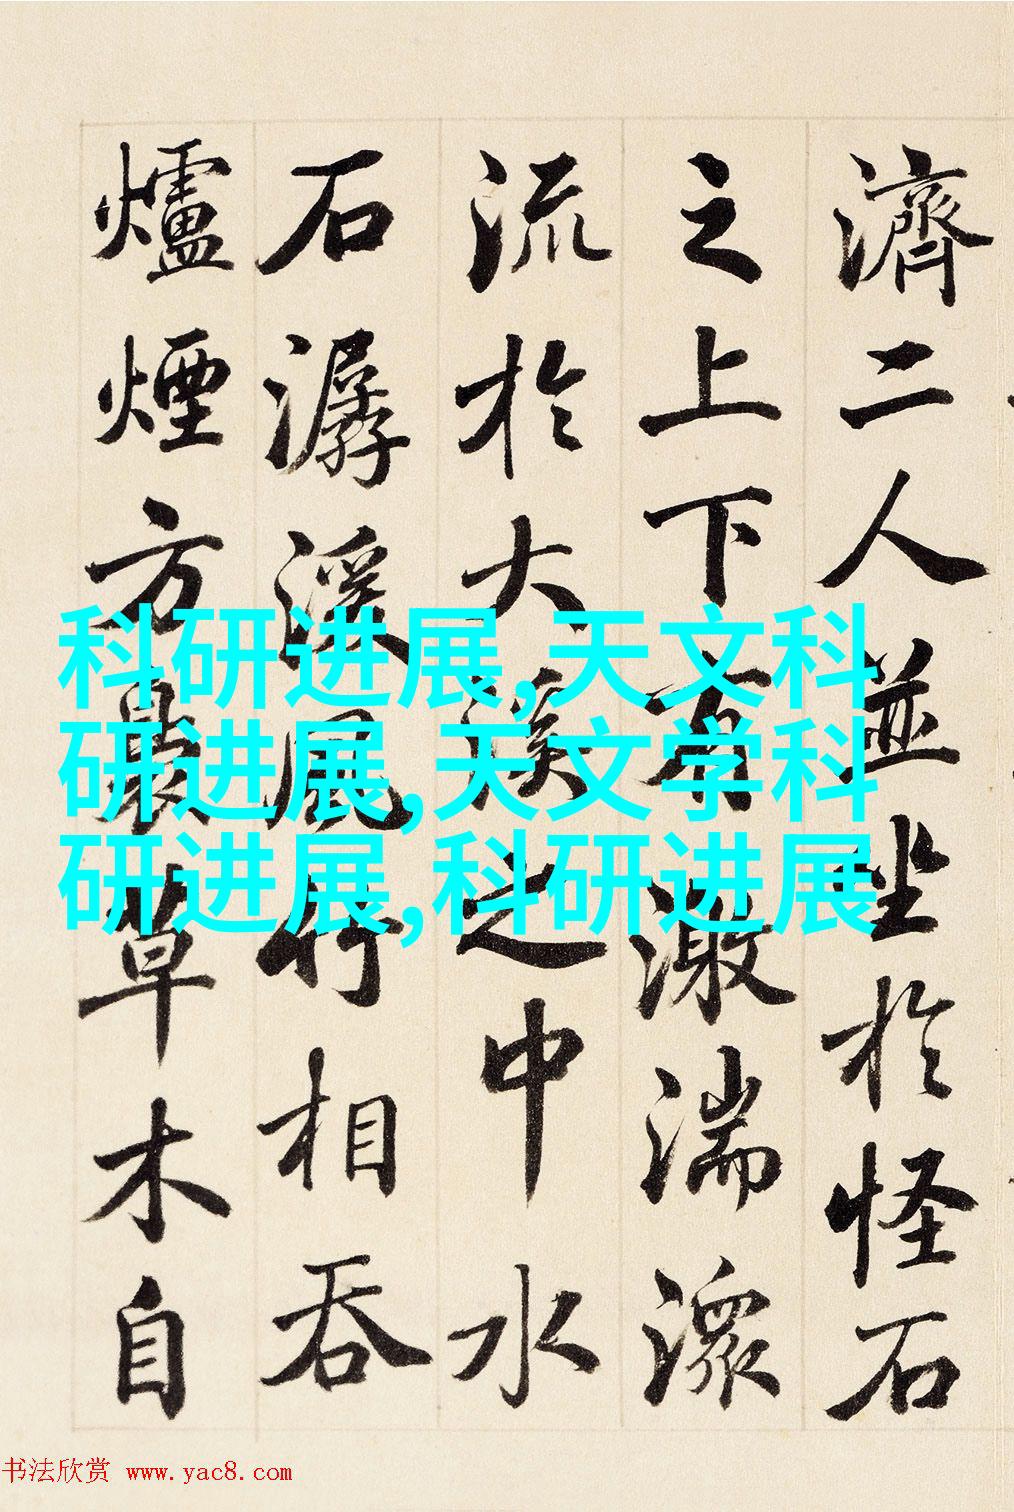 濟二人並坐於怪石
之上下有激湍潀
流於大溪之中水
石潺湲風竹相吞
爐煙方裊草木自
科研进展,天文科
研进展,天文学科
研进展,科研进展
书法欣赏 www.yac8.com